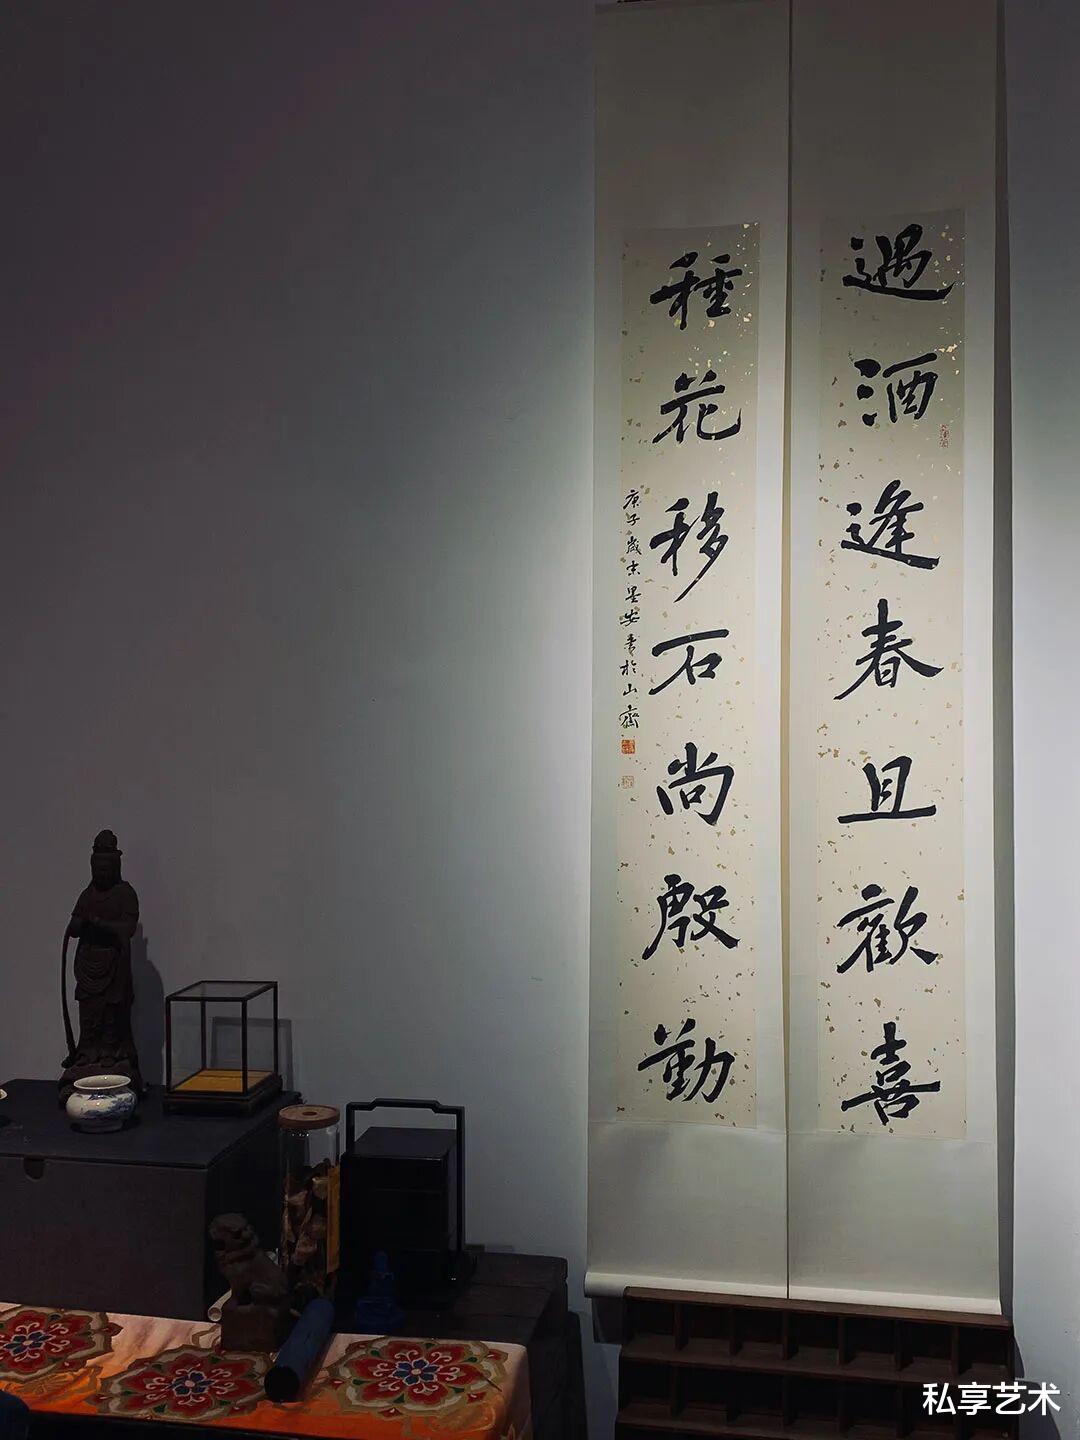 遇酒逢春且歡喜
種花移石尚殷勤
庚子歲末墨安書於山齋
私享艺术